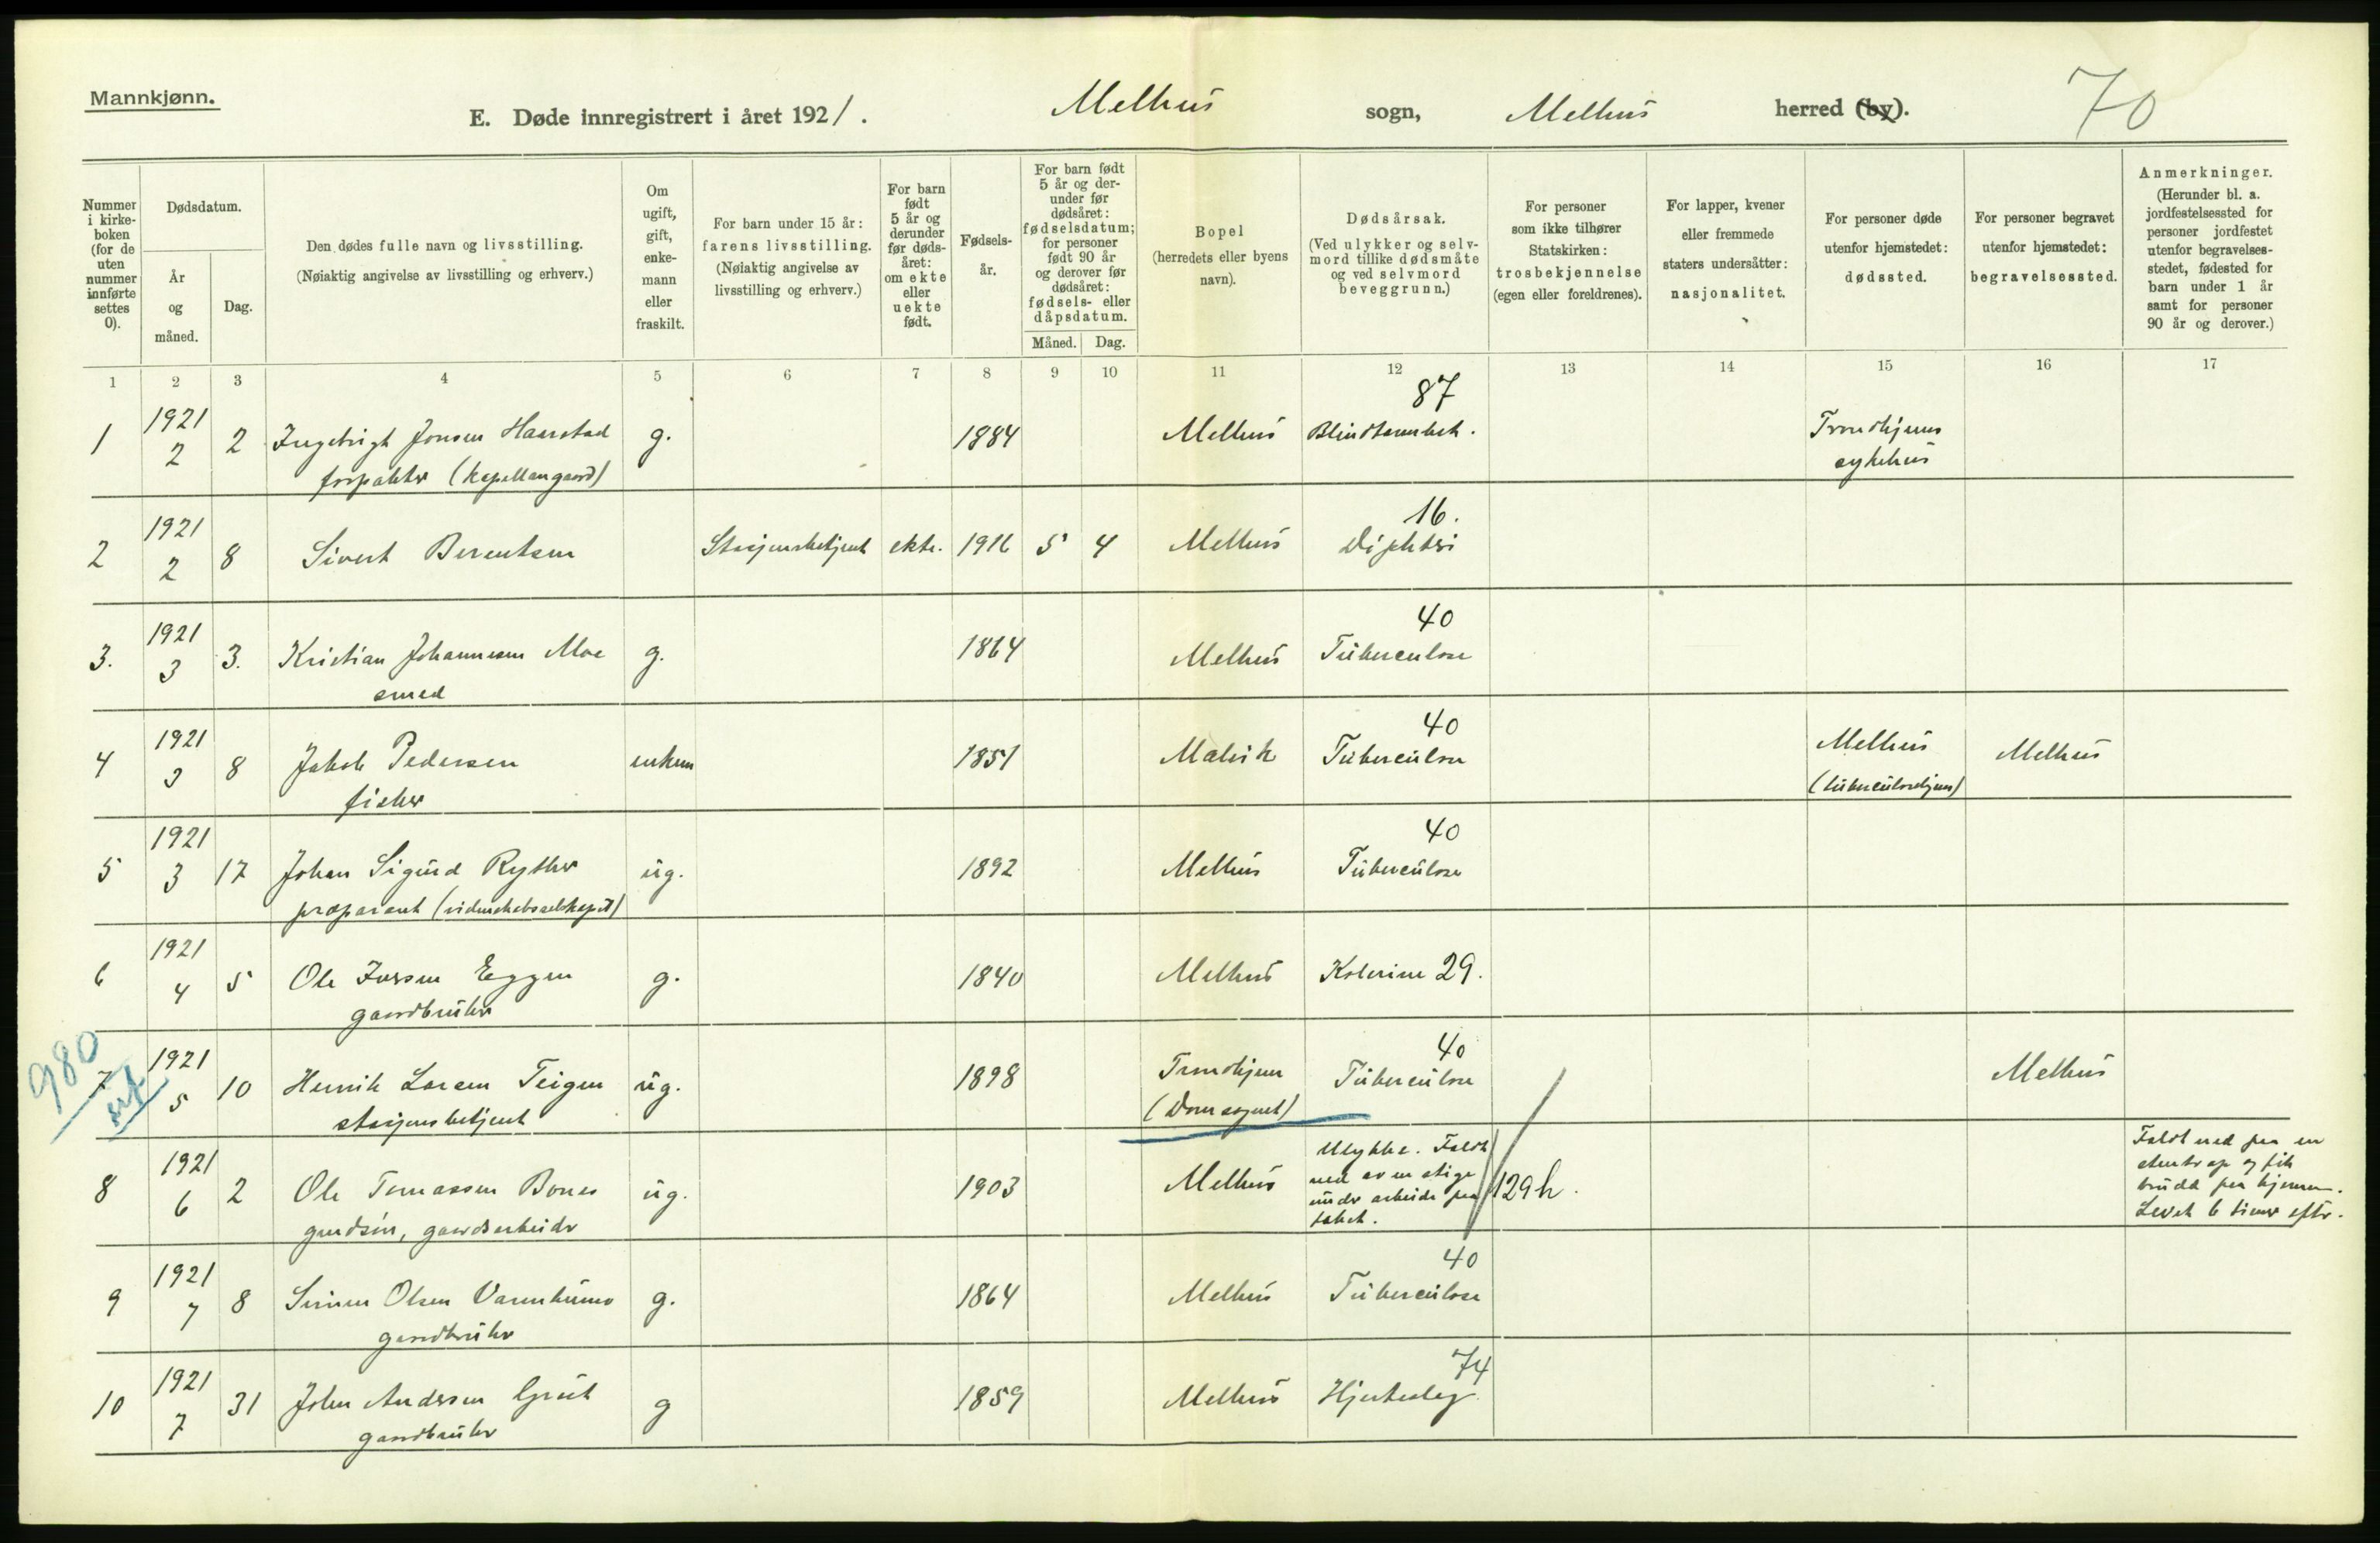 Mannkjønn.
E. Døde innregistrert i året 1921. Melhus sogn, Melhus herred (by). 70
Nummer i kirke-boken (for de uten nummer innførte settes 0).
Dødsdatum.
År og måned.
Dag.
Den dødes fulle navn og livsstilling.
(Nøiaktig angivelse av livsstilling og erhverv.)
Om ugift, gift, enke-mann eller fraskilt.
For barn under 15 år: farens livsstilling.
(Nøiaktig angivelse av livsstilling og erhverv.)
For barn født 5 år og derunder før døds-året: om ekte eller uekte født.
Fødsels-år.
For barn født 5 år og der-under før dødsåret: fødselsdatum; for personer født 90 år og derover før dødsåret: fødsels- eller dåpsdatum.
Måned. Dag.
Bopel
(herredets eller byens navn).
Dødsårsak.
(Ved ulykker og selv-mord tillike dødsmåte og ved selvmord beveggrunn.)
For personer som ikke tilhører Statskirken: trosbekjennelse (egen eller foreldrenes).
For lapper, kvener eller fremmede staters undersåtter: nasjonalitet.
For personer døde utenfor hjemstedet: dødssted.
For personer begravet utenfor hjemstedet: begravelsessted.
Anmerkninger.
(Herunder bl. a. jordfestelsessted for personer jordfestet utenfor begravelses-stedet, fødested for barn under 1 år samt for personer 90 år og derover.)
1 2 3 4 5 6 7 8 9 10 11 12 13 14 15 16 17
87
1 1921 2 2 Ingebrigt Jonsen Haarstad g. 1884 Melhus Blindtarmbet. Trondhjems
forpakter (kapellangaard) sykehus
16.
2 1921 2 8 Sivert Berentsen Stasjonsbetjent ekte. 1916 5 4 Melhus Difteri
40
3. 1921 3 3. Kristian Johannesen Moe g. 1864 Melhus Tuberculose
smed
40
4 1921 3 8 Jakob Pedersen enkem 1851 Malvik Tuberculose Melhus Melhus
fisker (tuberculosehjem)
40
5 1921 3 17 Johan Sigurd Rythes ug. 1892 Melhus Tuberculose
præparant (videnskabsselskapet)
6 1921 4 5 Ole Eggen g. 1840 Melhus Kolerine 29.
gaardbruker
980
40
7 1921 5 10 Henrik Larsen Teigen ug. 1898 Trondhjem Tuberculose Melhus
stasjonsbetjent
8 1921 6 2 Ole Tomassen Bones ug. 1903 Melhus Ulykke. Faldt
ned av en stige
under arbeide paa
taket.
129h.
Faldt ned paa en
og fik
brudd paa hjernen.
Levet 6 timer efter.
gaardsarbeider
40
9 1921 7 8 Simen Olsen g. 1864 Melhus Tuberculose
gaardbruker
74
10 1921 7 31 John Andersen Gruet g 1859 Melhus Hjerteslag.
gaardbruker